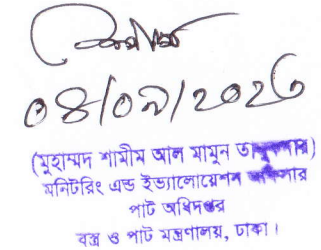 ০৪/০৯/২০২৩
(মুহাম্মদ শামীম আল মামুন
মনিটরিং এন্ড ইভ্যালোয়েশন
পাট অধিদপ্তর
বস্ত্র ও পাট মন্ত্রণালয়, ঢাকা।